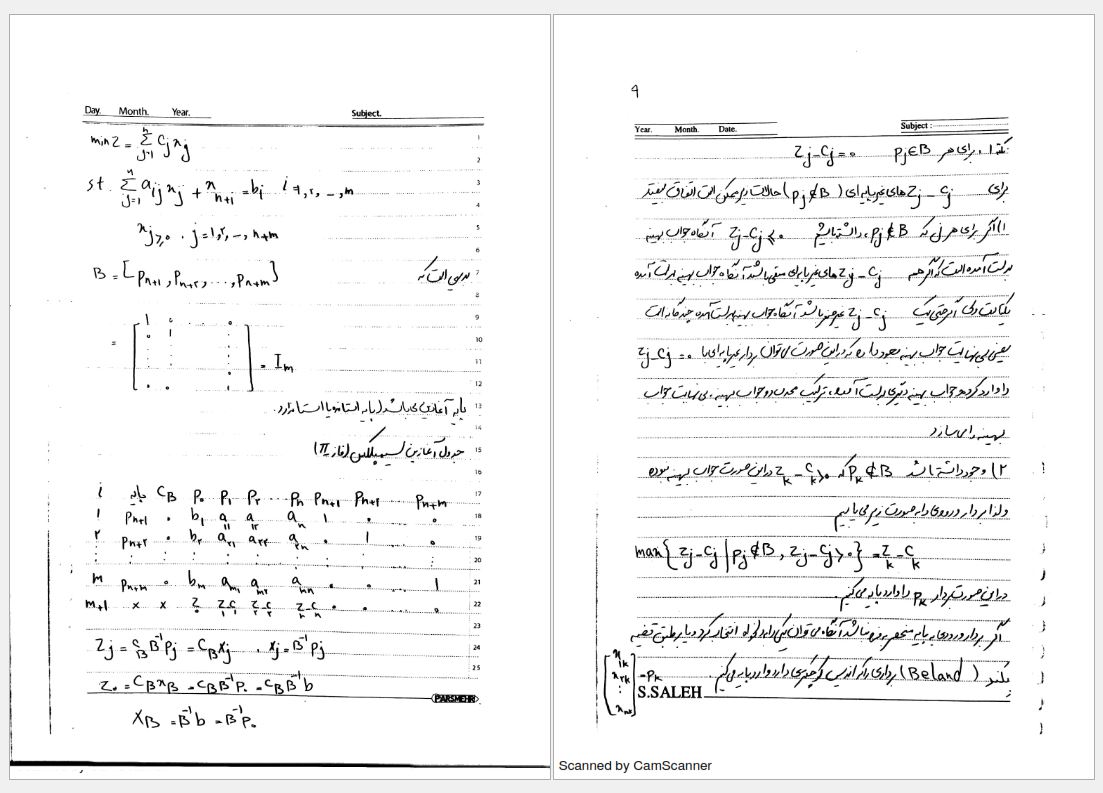 Day. Month. Year. Subject.
min Z = Σ_{j=1}^{n} c_j x_j
st. Σ_{j=1}^{n} a_{ij} x_j + x_{n+i} = b_i i = 1, ۲, -, m
x_j ≥ 0 , j = 1, ۲, -, n+m
B = [P_{n+1}, P_{n+۲}, ..., P_{n+m}] بدیهی است که
= [ ] = I_m
پایه آغازین می‌باشد (پایه استاندارد
جدول آغازین سیمپلکس (فاز II)
i پایه C_B P_0 P_1 P_۲ ... P_n P_{n+1} P_{n+۲} P_{n+m}
1 P_{n+1} 0 b_1 a_{11} a_{1۲} a_{1n} 1 0 0
۲ P_{n+۲} 0 b_۲ a_{۲1} a_{۲۲} a_{۲n} 0 1 0
m P_{n+m} 0 b_m a_{m1} a_{m۲} a_{mn} 0 0 1
m+1 x x Z_0 Z_1-C_1 Z_۲-C_۲ Z_n-C_n 0 0 0
Z_j = C_B B^{-1} P_j = C_B X_j , X_j = B^{-1} P_j
Z_0 = C_B X_B = C_B B^{-1} P_0 = C_B B^{-1} b
PARSMEHR
X_B = B^{-1} b = B^{-1} P_0
۹
Year. Month. Date. Subject :
نکته ۱ . برای هر P_j ∈ B Z_j - C_j = 0
برای Z_j - C_j های غیرپایه‌ای (P_j ∉ B) حالات زیر ممکن است اتفاق بیفتد
۱) اگر برای هر j که P_j ∉ B داشته باشیم Z_j - C_j ≤ 0 آنگاه جواب بهینه
بدست آمده است که اگر همه Z_j - C_j های غیرپایه‌ای منفی باشد آنگاه جواب بهینه بدست آمده
یکتاست ولی اگر حتی یک Z_j - C_j صفر باشد آنگاه جواب بهینه بدست آمده چندگانه است
یعنی بی نهایت جواب بهینه وجود دارد که در این صورت می‌توان بردار غیرپایه‌ای با Z_j - C_j = 0
را وارد کرده جواب بهینه دیگری بدست آمده، ترکیب محدب دو جواب بهینه، بی نهایت جواب
بهینه را می‌سازد
۲) وجود داشته باشد P_k ∉ B که Z_k - C_k > 0 در این صورت جواب بهینه نبوده
و لذا بردار ورودی را به صورت زیر می‌یابیم
max { Z_j - C_j | P_j ∉ B, Z_j - C_j > 0 } = Z_k - C_k
در این صورت بردار P_k را وارد پایه می‌کنیم.
اگر بردار ورودی به پایه منحصر به فرد نباشد آنگاه می‌توان یکی را به دلخواه انتخاب کرد و یا بر طبق قضیه
بلند (Beland) برداری را که اندیس کوچکتری دارد وارد پایه می‌کنیم. = P_k [x_{1k} x_{۲k} ⋮ x_{mk}]
S.SALEH
Scanned by CamScanner